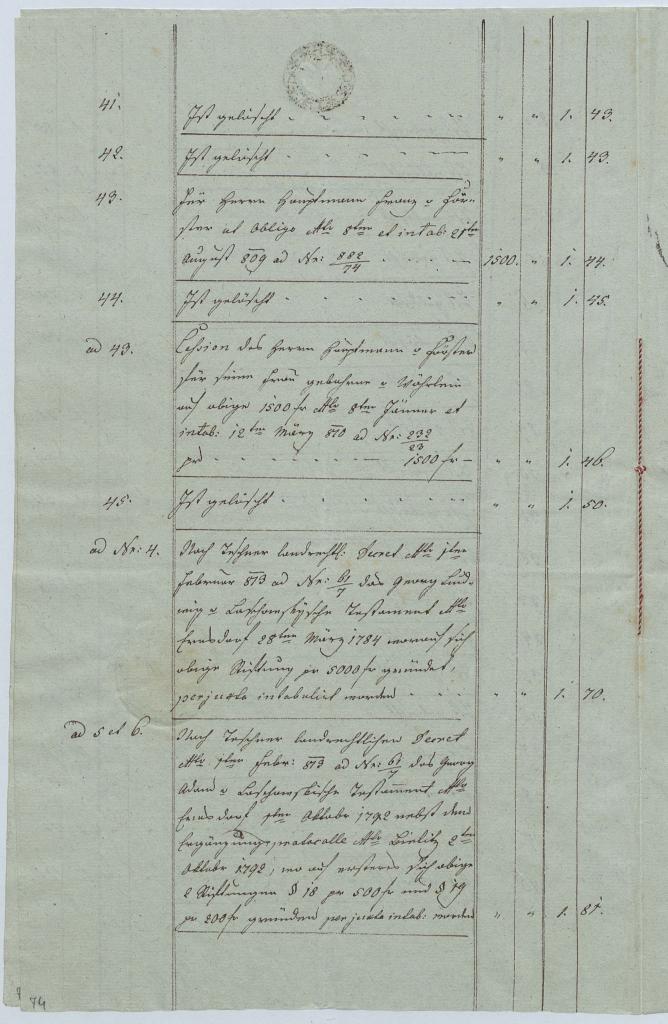 41. Ist gelöscht - - - - - " " 1. 43.
42. Ist gelöscht - - - - - " " 1. 43.
43. Für Herrn Hauptmann Franz v För-
ster et Obligo dto 8ten et intab: 21ten
August 809 ad Nr: 882/74 - - - 1500. " 1. 44.
44. Ist gelöscht - - - - - " " 1. 45.
ad 43. Cession des Herrn Hauptmann v Förster
für seine Frau gebohrne v Wöhrlein
auf obige 1500 fr dto 8ten Jänner et
intab: 12ten März 810 ad Nr: 232/23
pr - - - - - 1500 fr - " " 1. 46.
45. Ist gelöscht - - - - - " " 1. 50.
ad Nr: 4. Nach Teschner landrechtl: Decret dto 1ten
Februar 813 ad Nr: 61/7 das Georg Lud-
wig v Laschowskysche Testament dto
Ernsdorf 28ten März 1784 worauf sich
obige Stiftung pr 5000 fr gründet,
per juxta intabulirt worden - - - " " 1. 70.
ad 5 et 6. Nach Teschner landrechtlichen Decret
dto 1ten Febr: 813 ad Nr: 61/7 das Georg
Adam v Laschowskische Testament dto
Ernsdorf 1ten Oktobr 1792 nebst dem
Ergänzungsprotocolle dto Bielitz 2ten
Oktobr 1792, wo auf ersteres sich obige
2 Stiftungen § 18 pr 500 fr und § 19
pr 200 fr gründen per juxta intab: worden " " 1. 81.
74